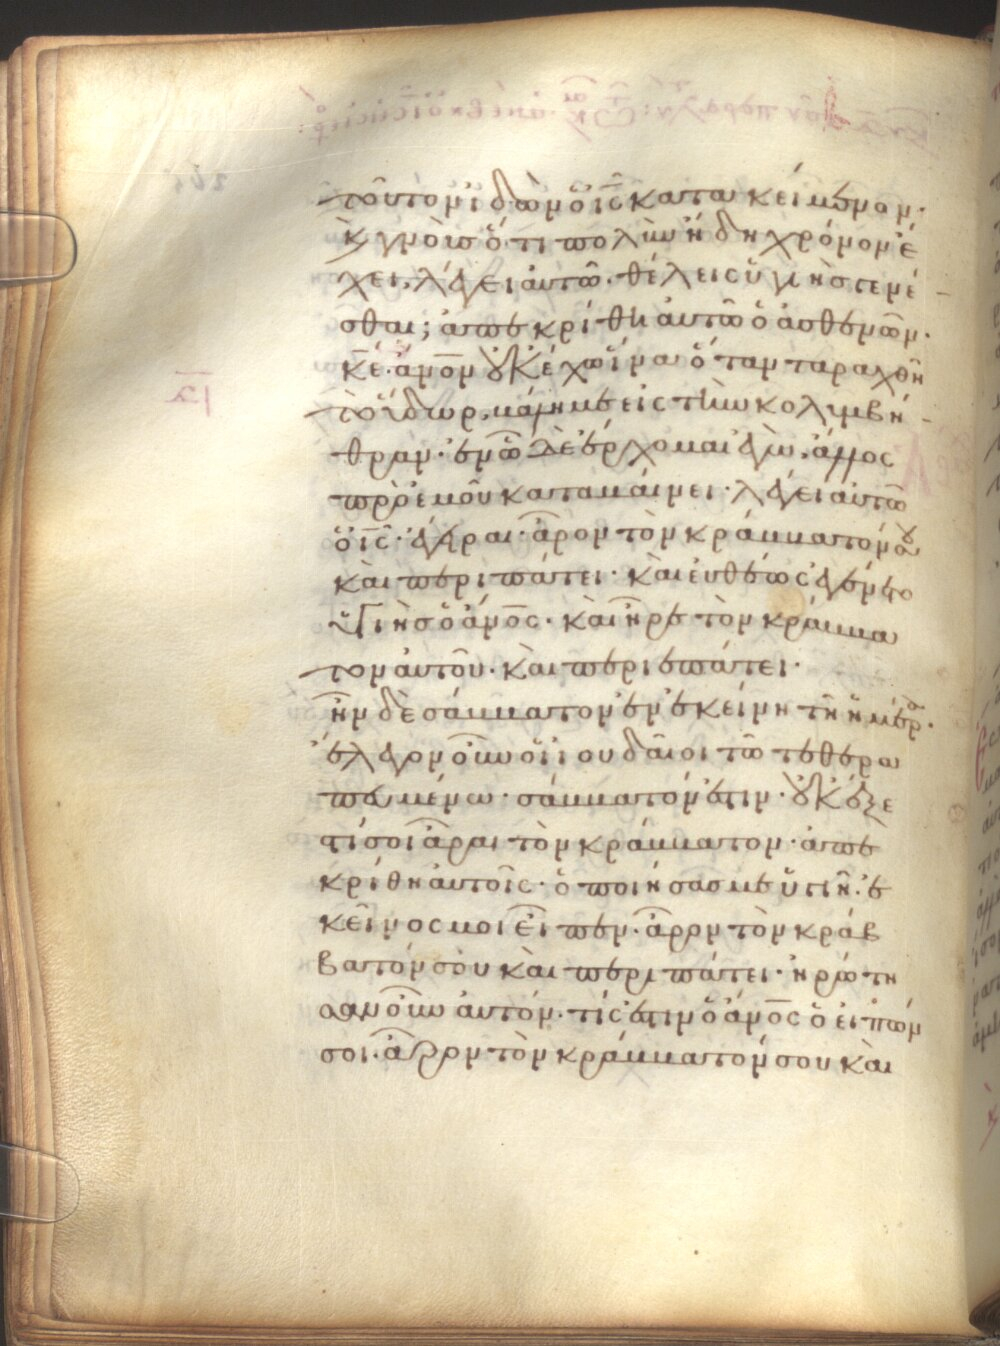 τοῦτον ἰδὼν ὁ ις κατακείμενον·
κ γνοὺσ ὅτι πολὺν ἤδη χρόνον ἔ
χει, λέγει αὐτῶ· θέλεις ὑγιὴς γενέ
σθαι; ἀπεκρίθη αὐτῶ ὁ ἀσθενῶν·
κε· ἀνον οὐκ ἔχω ἵνα ὅταν ταραχθῆ
τὸ ὕδωρ, βάλη με εἰς τὴν κολυμβή
θραν· ἐν ῶ δὲ ἔρχομαι ἐγὼ, ἄλλος
πρὸ ἐμοῦ καταβαίνει· λέγει αὐτῶ
ὁ ις· ἔγειραι· ἆρον τὸν κράββατόν σου
καὶ περιπάτει· καὶ εὐθέως ἐγένετο
ὑγιὴσ ὁ ἀνος· καὶ ἦρε τὸν κράββα
τον αὐτοῦ· καὶ περιεπάτει·
ἦν δὲ σάββατον ἐν ἐκείνη τῆ ἡμέρα·
ἔλεγον οὖν οἱ ἰουδαῖοι τῶ τεθερα
πευμένω· σάββατόν ἐστιν· οὐκ ἔξε
στί σοι ἆραι τὸν κράββατον· ἀπε
κρίθη αὐτοῖς· ὁ ποιήσασ με ὑγιῆ· ἐ
κεῖνος μοι εἶπεν· ἆρον τὸν κράβ
βατόν σου καὶ περιπάτει· ἠρώτη
σαν οὖν αὐτόν· τίς ἐστιν ὁ ἀνος ὁ εἰπών
σοι· ἆρον τὸν κράββατόν σου καὶ